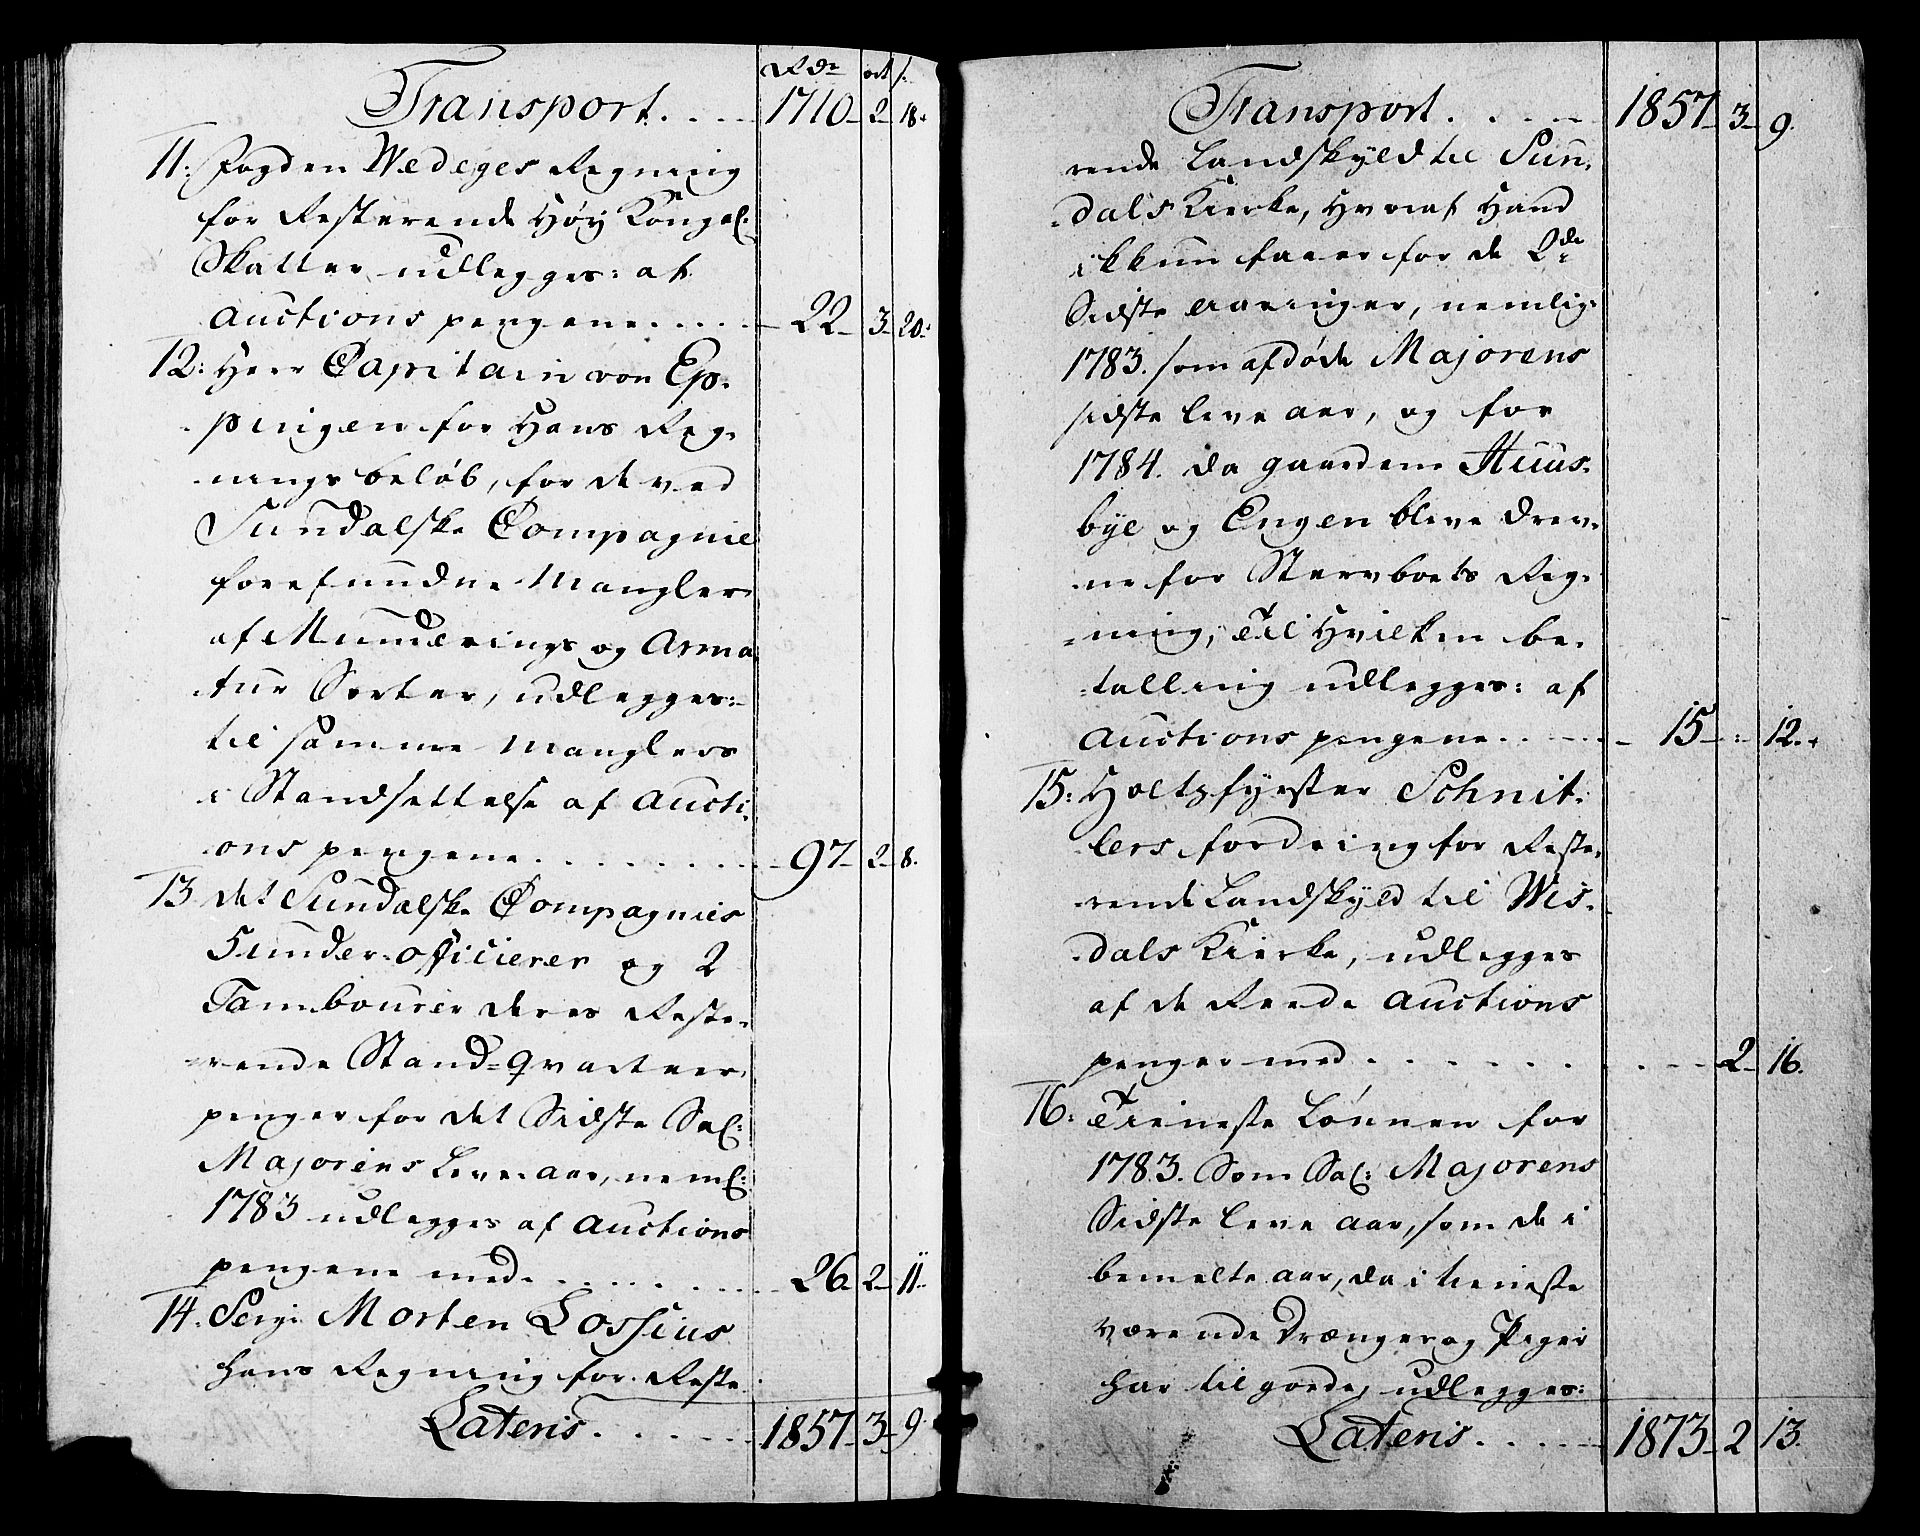 Rdr ort s.
Transport. . . . 1710 - 2 - 18.
11: Fogden Wedeges Regning
for Resterende Høy Kongel:
Skatter, udlegges: af
Auctions pengene . . . . . - 22 - 3 - 20.
12: Herr Capitain von Ep-
pingen for Hans Reg-
nings beløb, for de ved
Sundalske Compagnie
forefundne Mangler
af Munderings og Arma
tur Sorter, udlegges:
til samme Manglers
i Standsettelse af Aucti-
ons pengene . . . . . . . . 97 - 2 - 8.
13 det Sundalske Compagnies
5 under-officierer og 2
Tambourer deres Reste-
rende Stand-qvarteer,
penger for det Sidste Sal:
Majorens Leve aar, neml:
1783 udlegges af Auctions
pengene med. . . . . . . 26 2 - 11.
14. Sergi: Morten Lossius
hans Regning for Reste
Lateris. . . . . 1857 - 3 - 9
Transport. . . . 1857 - 3 - 9.
rende Landskyld til Sun-
dals Kierke, Hvoraf Hand
ikkun faaer for de 2de
Sidste Aaringer, nemlig:
1783. som afdøde Majorens
sidste leve aar, og for
1784. da gaardene Huus-
bye og Engen bleve drev-
ne for Sterv boets Reg-
ning, Til Hvilken be-
talling udlegges: af
Auctions pengene . . . . . - 15 - : - 12.
15: Holtzfyrster Schnit-
lers fordring for Reste-
rende Landskyld til Wis-
dals Kierke, udlegges
af de Reede Auctions
penger med . . . . . . . . . 2 - 16.
16: Tieneste Lønnen for
1783. Som Sal: Majorens
Sidste leve aar, som de i
bemelte aar, da i tieneste
værende Drænger og Piger
har til gode, udlegges:
Lateris. . . . . 1873 - 2 13.